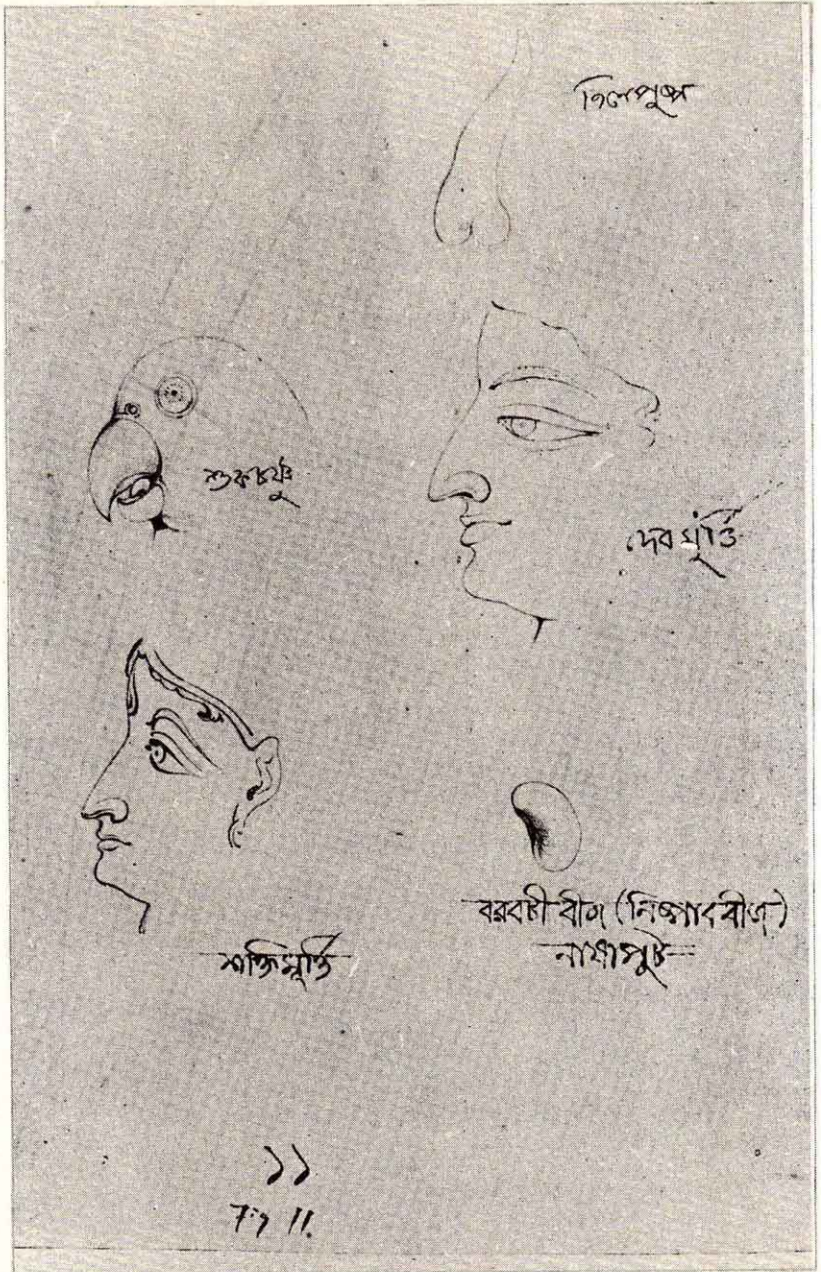 তিলপুষ্প
শুকচঞ্চু
দেবমূর্ত্তি
শক্তিমূর্ত্তি
বরবটী বীজ (নিষ্পাববীজ)
নাসাপুট
১১
11.